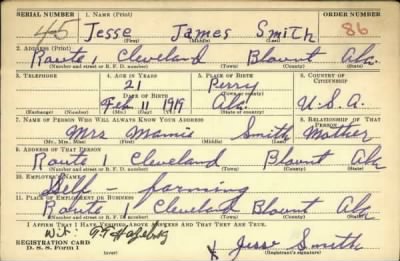 SERIAL NUMBER 1. NAME (Print) ORDER NUMBER
45 Jesse James Smith 86
(First) (Middle) (Last)
2. ADDRESS (Print)
Route 1 Cleveland Blount Ala.
(Number and street or R. F. D. number) (Town) (County) (State)
3. TELEPHONE 4. AGE IN YEARS 5. PLACE OF BIRTH 6. COUNTRY OF CITIZENSHIP
21 Perry
DATE OF BIRTH (Town or county)
Feb 11 1919 Ala. U.S.A.
(Exchange) (Number) (Mo.) (Day) (Yr.) (State or country)
7. NAME OF PERSON WHO WILL ALWAYS KNOW YOUR ADDRESS 8. RELATIONSHIP OF THAT PERSON
Mrs Mamie Smith Mother
(Mr., Mrs., Miss) (First) (Middle) (Last)
9. ADDRESS OF THAT PERSON
Route 1 Cleveland Blount Ala
(Number and street or R. F. D. number) (Town) (County) (State)
10. EMPLOYER'S NAME
Self - farming
11. PLACE OF EMPLOYMENT OR BUSINESS
Route 1 Cleveland Blount Ala
(Number and street or R. F. D. number) (Town) (County) (State)
I AFFIRM THAT I HAVE VERIFIED ABOVE ANSWERS AND THAT THEY ARE TRUE.
Wit:
REGISTRATION CARD
D. S. S. Form 1 (over) X Jesse Smith
(Registrant's signature)